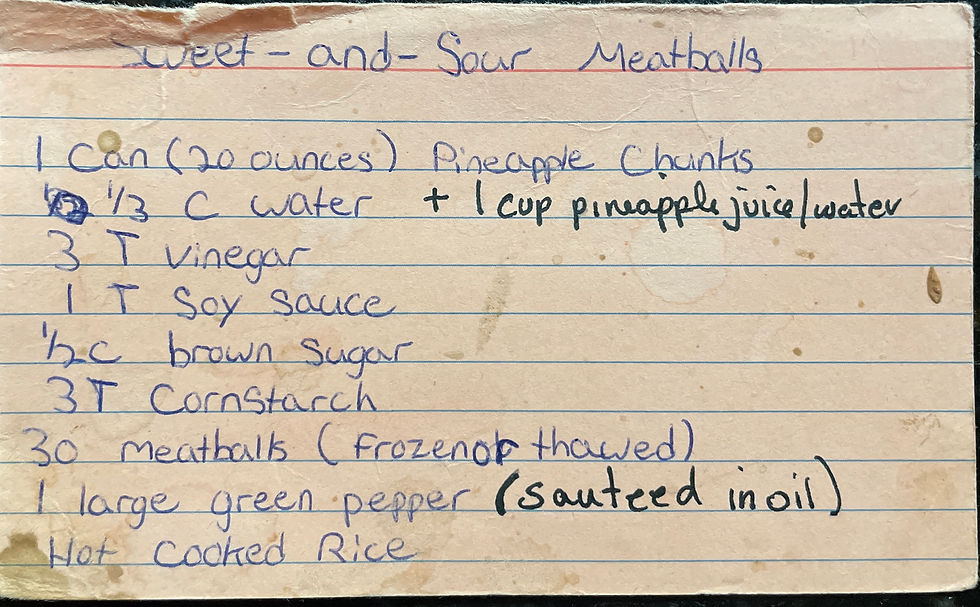 Sweet-and-Sour Meatballs
1 Can (20 ounces) Pineapple Chunks
1/3 C water + 1 cup pineapple juice/water
3 T vinegar
1 T Soy sauce
1/2 C brown sugar
3 T Cornstarch
30 meatballs (frozen or thawed)
1 large green pepper (sauteed in oil)
Hot Cooked Rice